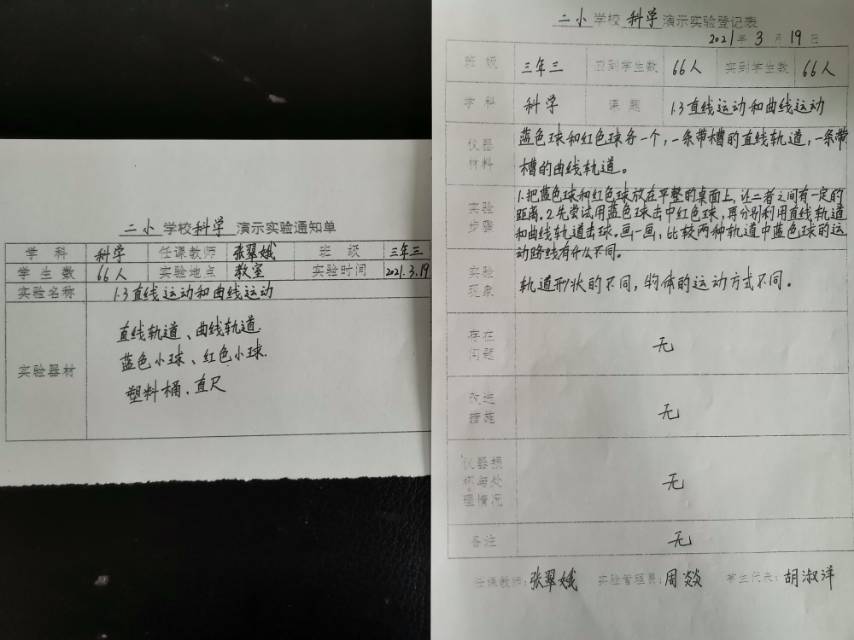 二小学校科学演示实验通知单
学科 科学 任课教师 张翠娥 班级 三年三
学生数 66人 实验地点 教室 实验时间 2021.3.19
实验名称 1.3直线运动和曲线运动
实验器材
直线轨道、曲线轨道
蓝色小球、红色小球.
塑料桶.直尺
二小学校科学演示实验登记表
2021年3月19日
班级 三年三 应到学生数 66人 实到学生数 66人
学科 科学 课题 1.3直线运动和曲线运动
仪器材料
蓝色球和红色球各一个,一条带槽的直线轨道,一条带
槽的曲线轨道。
实验步骤
1.把蓝色球和红色球放在平整的桌面上,让二者之间有一定的
距离.2.先尝试用蓝色球击中红色球,再分别利用直线轨道
和曲线轨道击球.画一画,比较两种轨道中蓝色球的运
动路线有什么不同。
实验现象
轨道形状的不同,物体的运动方式不同。
存在问题 无
改进措施 无
仪器损坏与处理情况 无
备注 无
任课教师:张翠娥 实验管理员:周燚 学生代表:胡淑洋